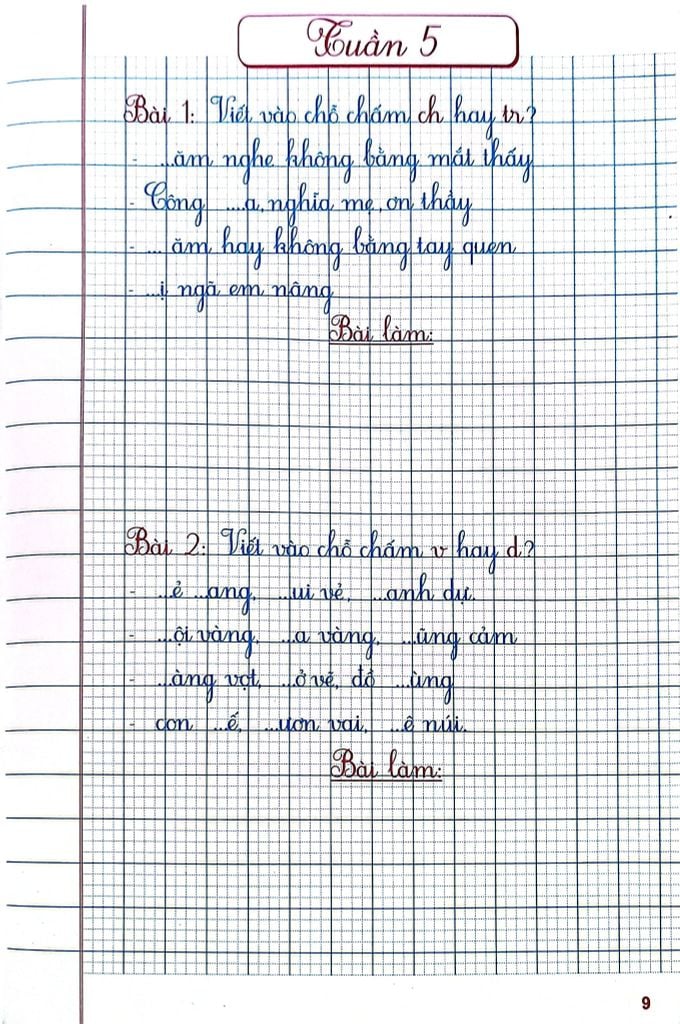 Tuần 5
Bài 1: Viết vào chỗ chấm ch hay tr?
- ...ăm nghe không bằng mắt thấy
- Công ...a, nghĩa mẹ, ơn thầy
- ... ăm hay không bằng tay quen
- ...ị ngã em nâng
Bài làm:
Bài 2: Viết vào chỗ chấm v hay d?
- ...ẻ ...ang, ...ui vẻ, ...anh dự.
- ...ội vàng, ...a vàng, ...ũng cảm
- ...àng vọt, ...ở vẽ, đồ ...ùng
- con ...ế, ...ươn vai, ...ê núi.
Bài làm:
9